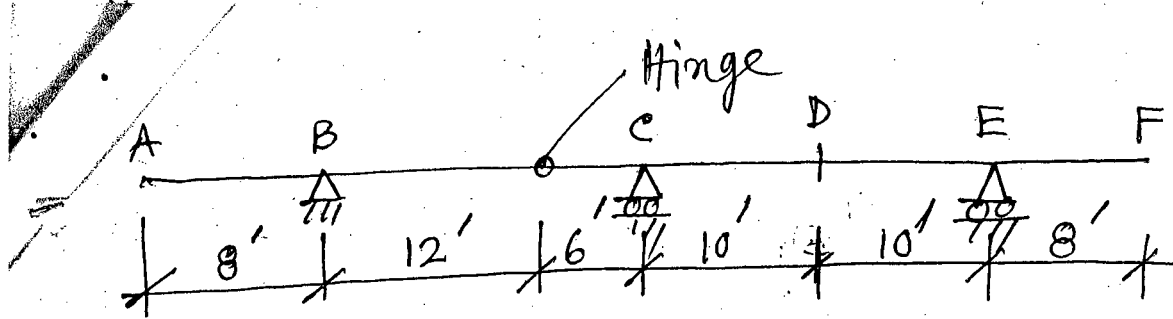 Hinge
A B C D E F
8' 12' 6' 10' 10' 8'